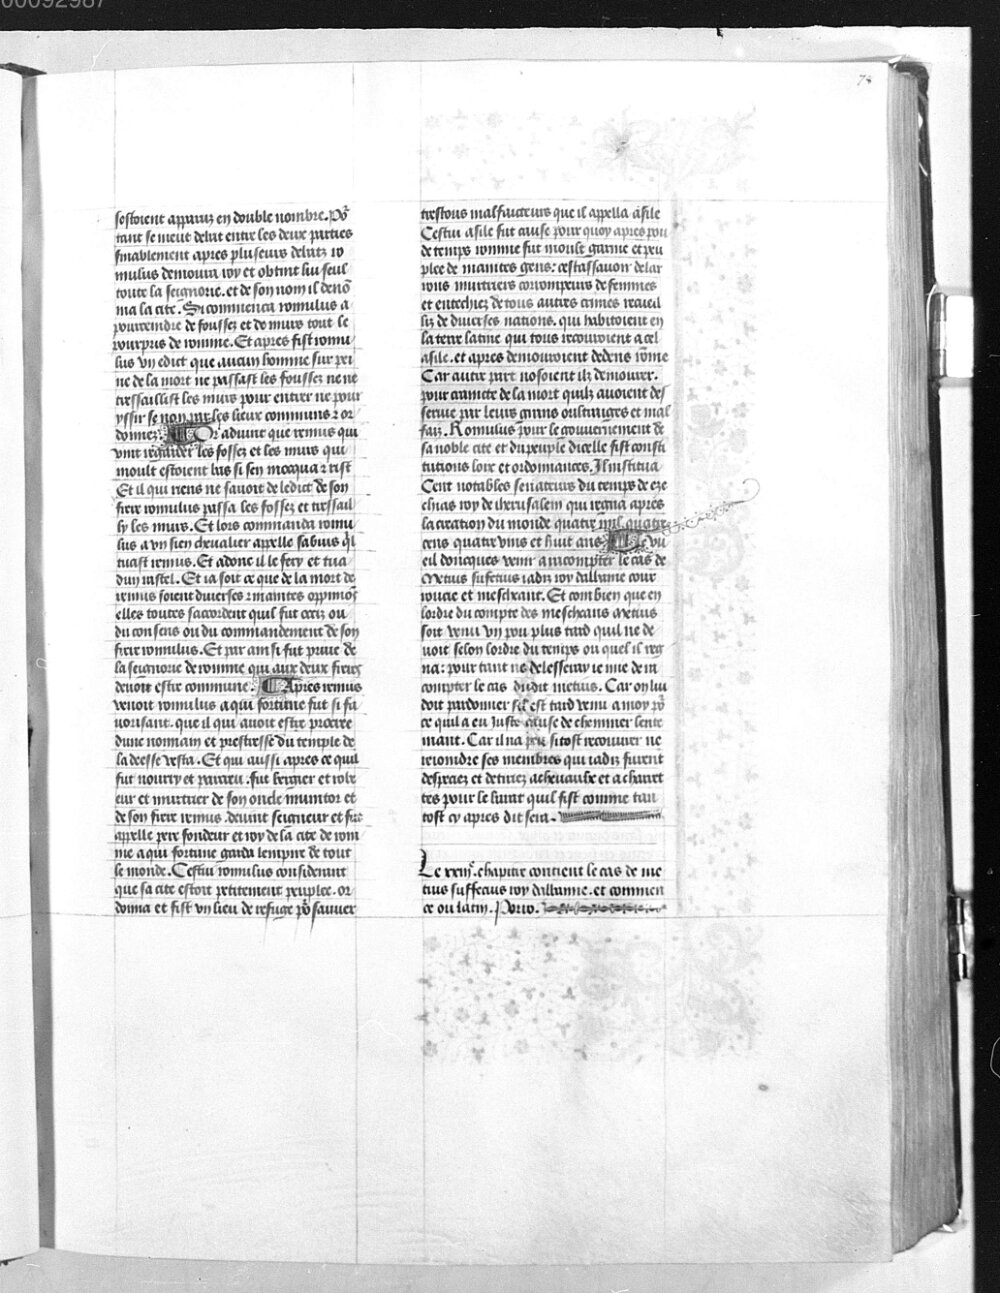 00092987
74
sestoient apparuz en double nombre. Po᷑
tant se meut debat entre les deux parties
finablement apres pluseurs debatz ro
mulus demoura roy et obtint luy seul
toute la seignorie. et de son nom il deno᷑
ma la cite. Si commenca romulus a
pourcendre de foussez et de murs tout le
pourpris de romme. Et apres fist romu
lus vn edict que aucun homme sur pei
ne de la mort ne passast les foussez ne ne
tressaillist les murs pour entrer ne pour
yssir se non par les lieux communs z or
donnez. Or aduint que remus qui
vint regarder les fossez et les murs qui
moult estoient bas si sen mocqua z rist
Et il qui riens ne sauoit de ledict de son
frere romulus passa les fossez et tressail
ly les murs. Et lors commanda romu
lus a vn sien cheualier appelle fabius q̃l
tuast remus. Et adonc il le fery et tua
dun rastel. Et ia soit ce que de la mort de
remus soient diuerses z maintes oppinio᷑s
elles toutes saccordent quil fut occiz ou
du consens ou du commandement de son
frere romulus. Et par ainsi fut priue de
la seignorie de romme qui aux deux freres
deuoit estre commune. Apres remus
venoit romulus a qui fortune fut si fa
uorisant. que il qui auoit estre procree
dune nonnain et prestresse du temple de
la deesse vesta. Et qui aussi apres ce quil
fut nourry et pareru. fut bergier et robe
eur et murtrier de son oncle munitor et
de son frere remus. deuint seigneur et fut
appelle pere fondeur et roy de la cite de rom
me a qui fortune garda lempire de tout
le monde. Cestui romulus considerant
que sa cite estoit petitement peuplee. or
donna et fist vn lieu de refuge po᷑ sauuer
trestous malfaicteurs que il appella asile
Cestui asile fut cause pour quoy apres pou
de temps romme fut moult garnie et peu
plee de maintes gens: cestassauoir de lar
rons murtriers corrompeurs de femmes
et entechiez de tous autres crimes recueil
liz de diuerses nations. qui habitoient en
la terre latine qui tous recouroient a cel
asile. et apres demouroient dedens ro᷑me
Car autre part nosoient ilz demourer.
pour crainte de la mort quilz auoient des
seruie par leurs grans oultraiges et mal
faiz. Romulus pour le gouuernement de
sa noble cite et du peuple dicelle fist consti
tutions loix et ordonnances. Il institua
Cent notables senateurs du temps de eze
chias roy de iherusalem qui regna apres
la creation du monde quatre mil quatre
cens quatre vins et huit ans. Je vu
eil doncques venir a racompter le cas de
Metius sufetius iadiz roy dalbanne cour
roucie et meschant. Et combien que en
lordre du compte des meschans Metius
soit venu vn pou plus tard quil ne de
uoit selon lordre du temps ou quel il reg
na: pour tant ne delesseray ie mie de ra
compter le cas dudit metius. Car on luy
doit pardonner sil est tard venu a moy po᷑
ce quil a eu iuste cause de cheminer lente
mant. Car il na peu si tost recouurer ne
reioindre ses membres qui iadiz furent
despeciez et detirez a cheuaulx et a charet
tes pour le barat quil fist comme tan
tost cy apres dit sera.
Le chapitre contient le cas de me
tius suffecius roy dalbanne. et commen
ce ou latin. Porro.